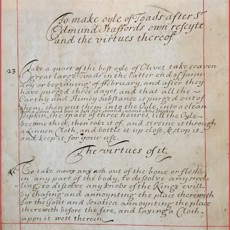 To make oyle of Toads after Sr
Edmund Staffords own reseipt
and the virtues thereof
23 Take a quart of the best oyle of Olives, take
great large Toads in the latter end of
or beginning of february, and after they
have purged three dayes and that all the
Earthy and slimy substance is purged out of
them, then put them into the Oyle, into a clean
pipkin, the space of three hours, till the Oyle
become red, then take it of, and straine it through
a linnen Cloth, and bottle it up close, & stop it
and keep it for your use.
The virtues of it.
To take away any ach out of the bone or flesh
in any part of the body, to dissolve any
to dissolve any knobs of the Kings evill
by chafing and annointing the place therewith
for the Gout and Sciatica annointing the place
therewith before the fire, and laying a Cloth
upon it wett therein.